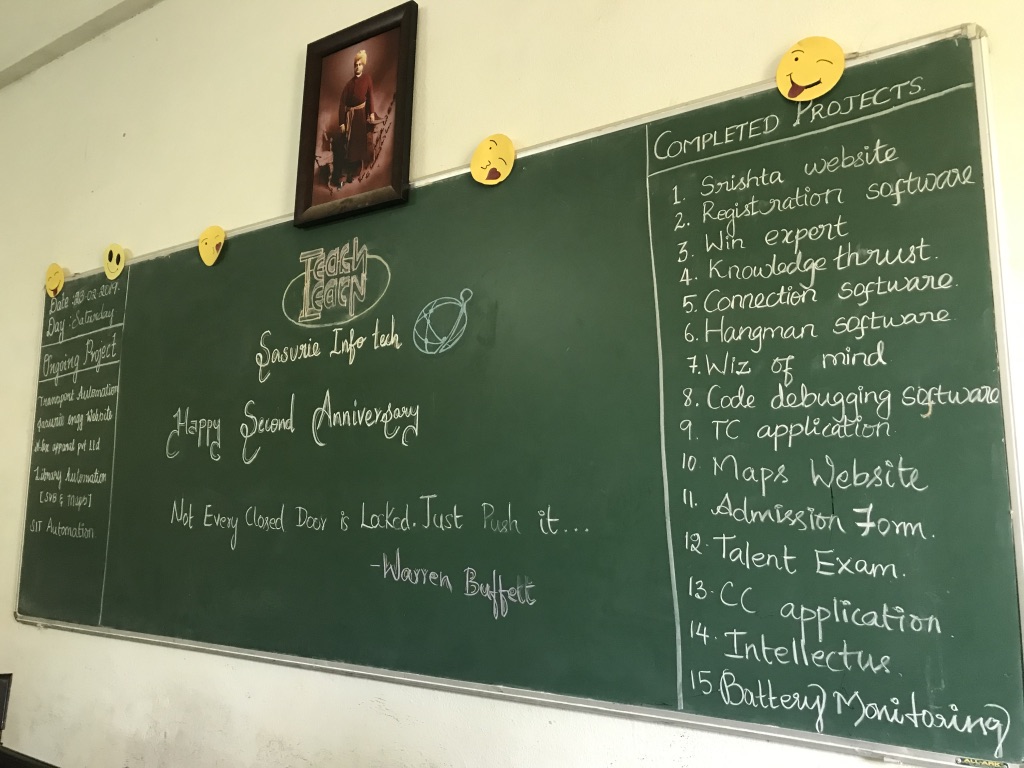 Day : Saturday
Ongoing Project
Transport Automation
Website
Library Automation
SIT Automation
Teach
Learn
Sasurie Info tech
Happy Second Anniversary
Not Every Closed Door is Locked. Just Push it...
-Warren Buffett
COMPLETED PROJECTS.
1. Srishta website
2. Registration software
3. Win expert
4. Knowledge thrust.
5. Connection software.
6. Hangman software
7. Wiz of mind
8. Code debugging software
9. TC application
10. Maps Website
11. Admission Form.
12. Talent Exam.
13. CC application.
14. Intellectus.
15 Battery Monitoring